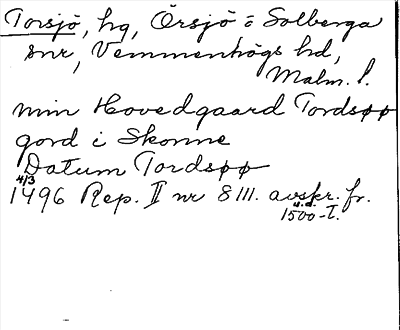 Torsjö, hg, Örsjö ō Solberga
snr, Vemmenhögs hd,
Malm. l.
min Hovedgaard Tordsøø
gord i Skonne
Datum Tordsøø
4/3
1496 Rep. II nr 8111. avskr. fr.
u.d.
1500-t.